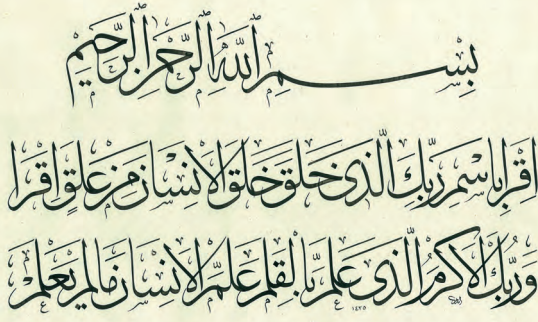 بِسْمِ ٱللَّهِ ٱلرَّحْمَٰنِ ٱلرَّحِيمِ
اقرأ باسم ربك الذي خلق خلق الإنسان من علق اقرأ
وربك الأكرم الذي علم بالقلم علم الإنسان ما لم يعلم
١٤٢٥